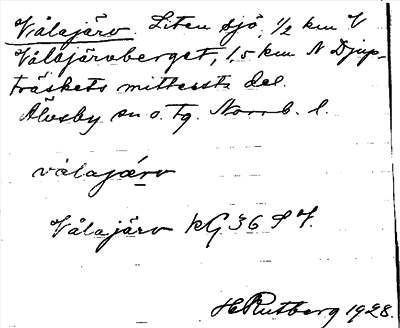 Vålajärv Liten sjö, ½ km V
Vålajärvberget, 1,5 km N Djup-
träskets mittersta del.
Älvsby sn o. tg. Norrb. l.
vålajärv
Vålajärv kG 36 S V.
H Rutberg 1928.